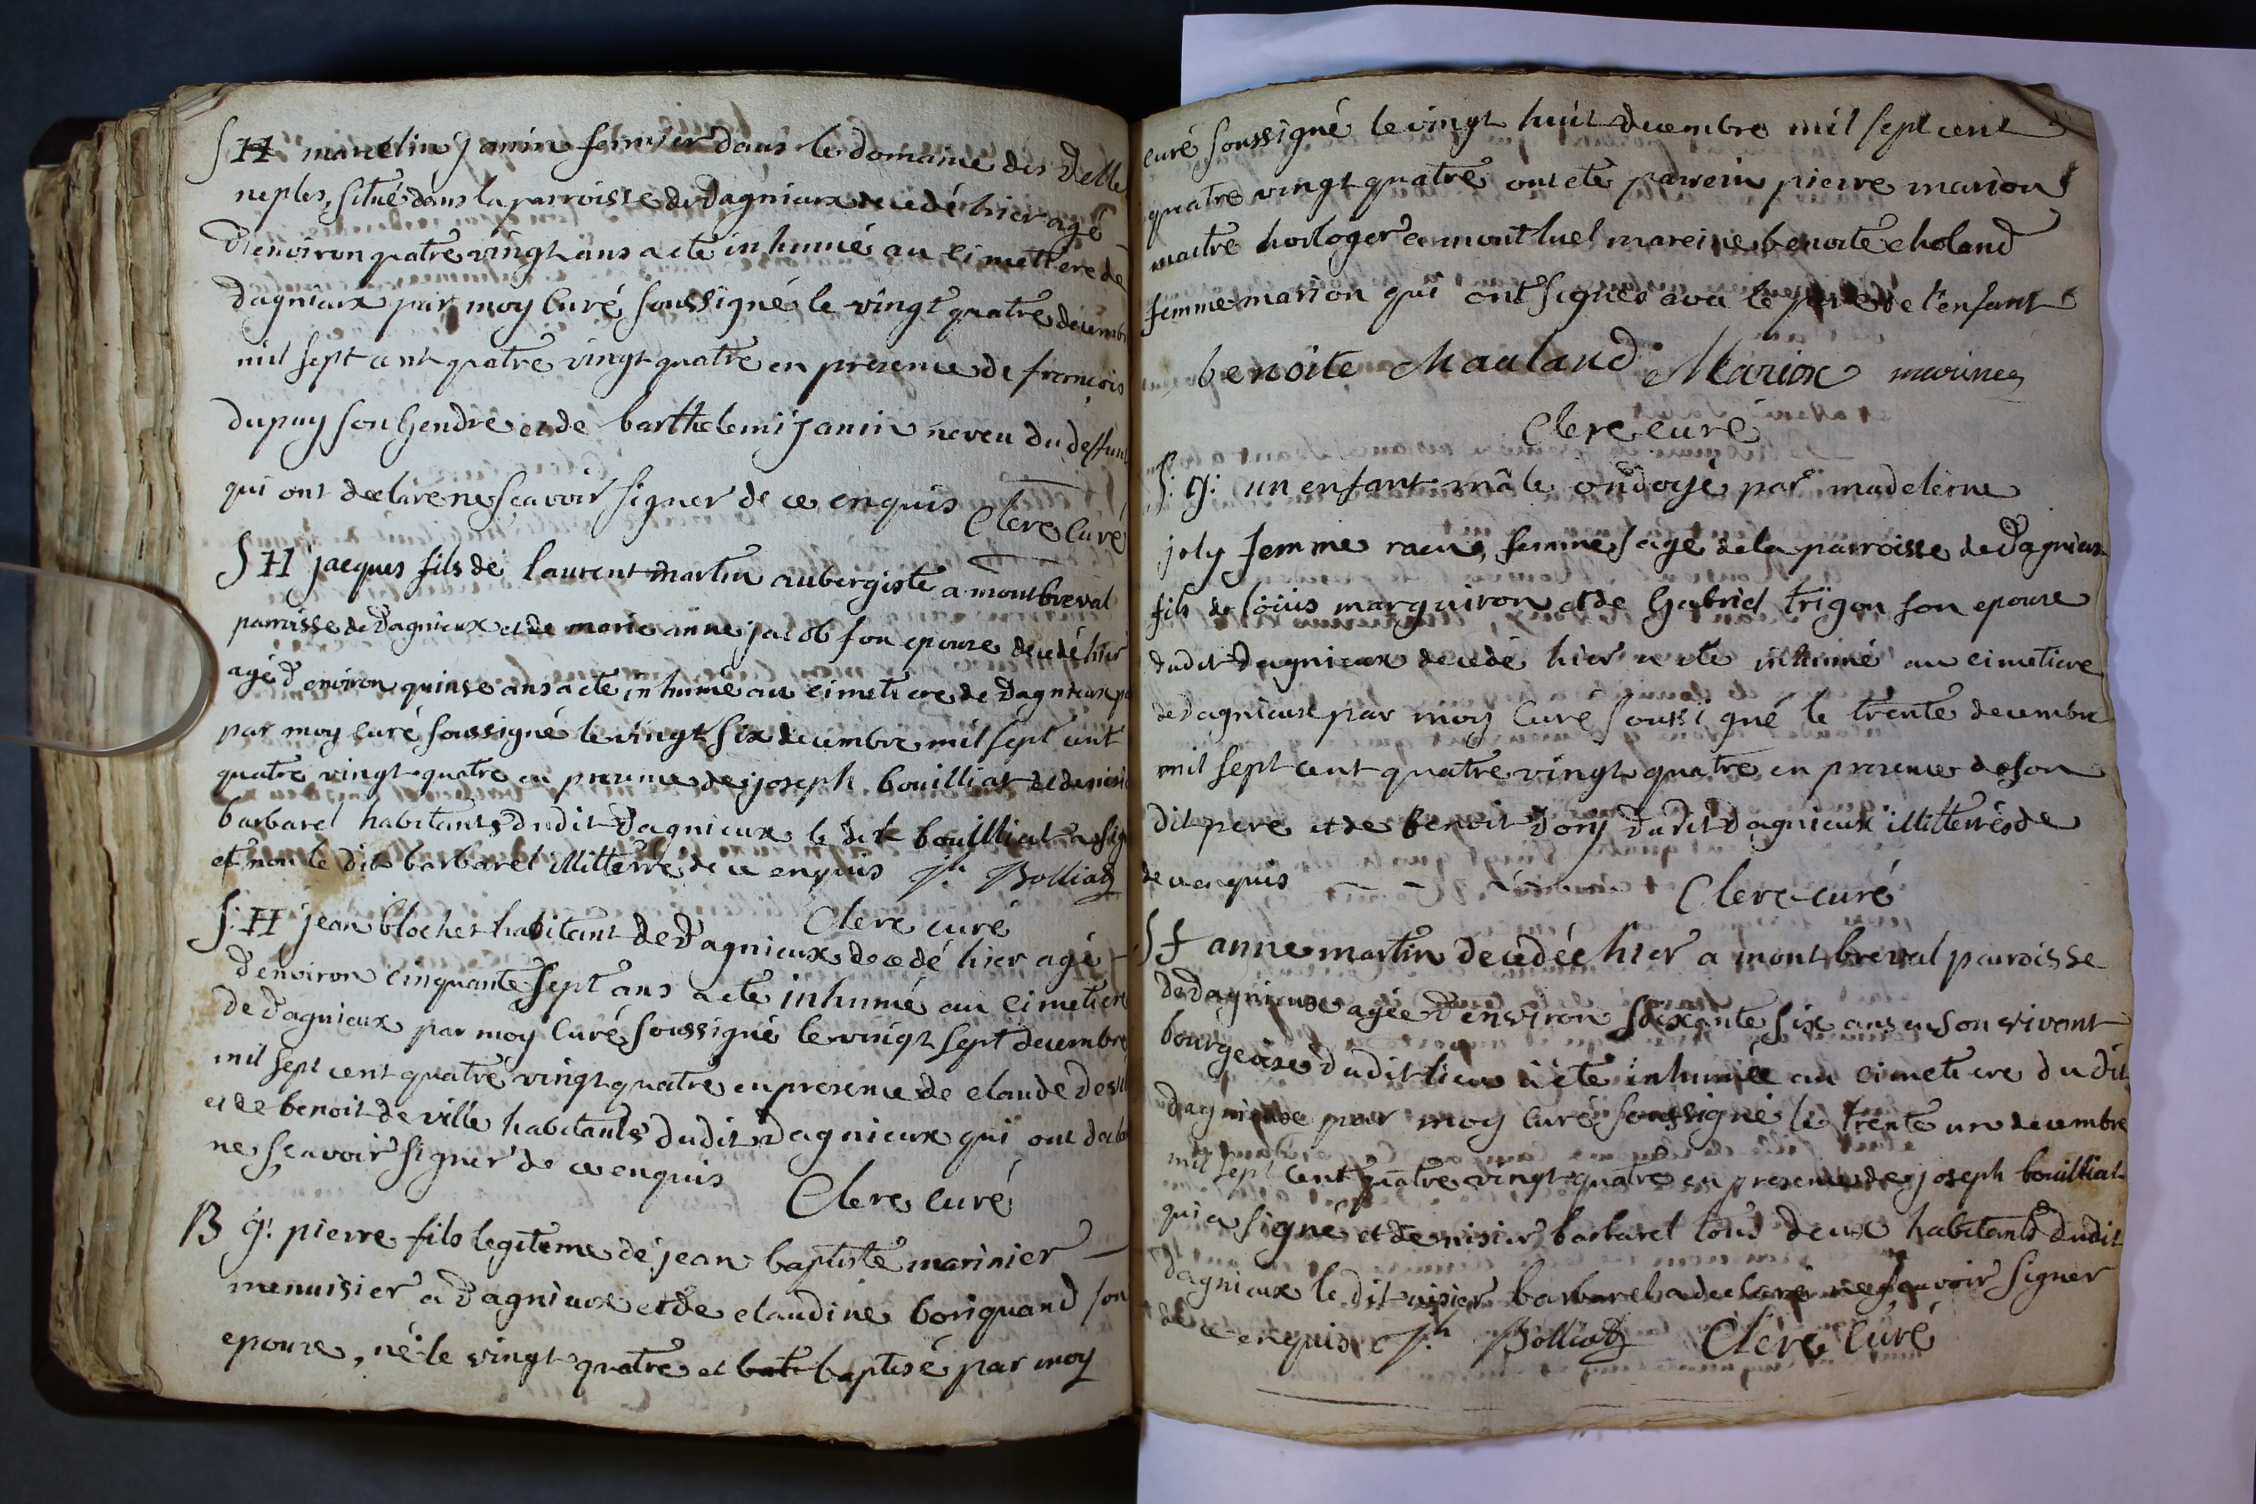 S H marcelin jamin fermier dans le domaine des Delle
neples, situé dans la parroisse de Dagnieux decedé hier agé
D'environ quatre vingt ans a ete inhumé au cimettere de
Dagnieux par moy Curé soussigné le vingt quatre decemb
mil sept cent quatre vingt quatre en presence de françois
dupuy son Gendre et de barthelemi jamin neveu du deffun
qui ont declare ne sçavoir signer de ce enquis Clere Curé
S H jacques fils de laurent martin aubergiste a montbreval
parroisse de Dagnieux et de marie anne jacob son epouse decedé hier
agé d'environ quinse ans a ete inhumé au cimetiere de Dagnieux
par moy curé soussigné le vingt six decembre mil sept cent
quatre vingt quatre en presence de joseph bouilliat et de
barbaret habitants dudit Dagnieux le dit bouilliat a sig
et non le dit barbaret illitterré de ce enquis jh Bolliat
Clere curé
S: H jean blochet habitant de Dagnieux decedé hier agé
d'environ cinquante sept ans a ete inhumé au cimetiere
de Dagnieux par moy Curé soussigné le vingt sept decembre
mil sept cent quatre vingt quatre en presence de claude
et de benoit de ville habitants dudit Dagnieux qui ont
ne sçavoir signer de ce enquis Clere Curé
B g: pierre fils legiteme de jean baptiste marinier
menuisier a Dagnieux et de claudine boriquand son
epouse, né le vingt quatre et bate baptisé par moy
curé soussigné le vingt huit decembre mil sept cent
quatre vingt quatre ont ete parrein pierre marion
maitre horloger a montluel mareine benoite choland
femme marion qui ont signés avec le pere de l'enfant
benoite Chauland Marion marinier
Clere curé
S: g: un enfant mâle ondoyé par madeleine
joly femme racu, femme sage de la parroisse de Dagnieux
fils de loüis marguiron et de Gabriel trigon son epouse
dudit Dagnieux decedé hier a ete inhumé au cimetiere
de Dagnieux par moy Curé soussigné le trente decembre
mil sept cent quatre vingt quatre en presence de son
dit pere et de Benoit Dory dudit Dagnieux illitterrés de
de ce enquis Clere curé
S f anne martin decedée hier a mont breval parroisse
de Dagnieux agée d'environ soixante six ans en son vivant
bourgeoise dudit lieu a ete inhumée au cimetiere du dit
Dagnieux par moy Curé soussigné le trente un decembre
mil sept cent quatre vingt quatre en presence de joseph bouilliat
qui a signé et de nisier barbaret tous deux habitants dudit
Dagnieux le dit nisier barbaret a declaré ne sçavoir signer
de ce enquis jh Bolliat Clere Curé